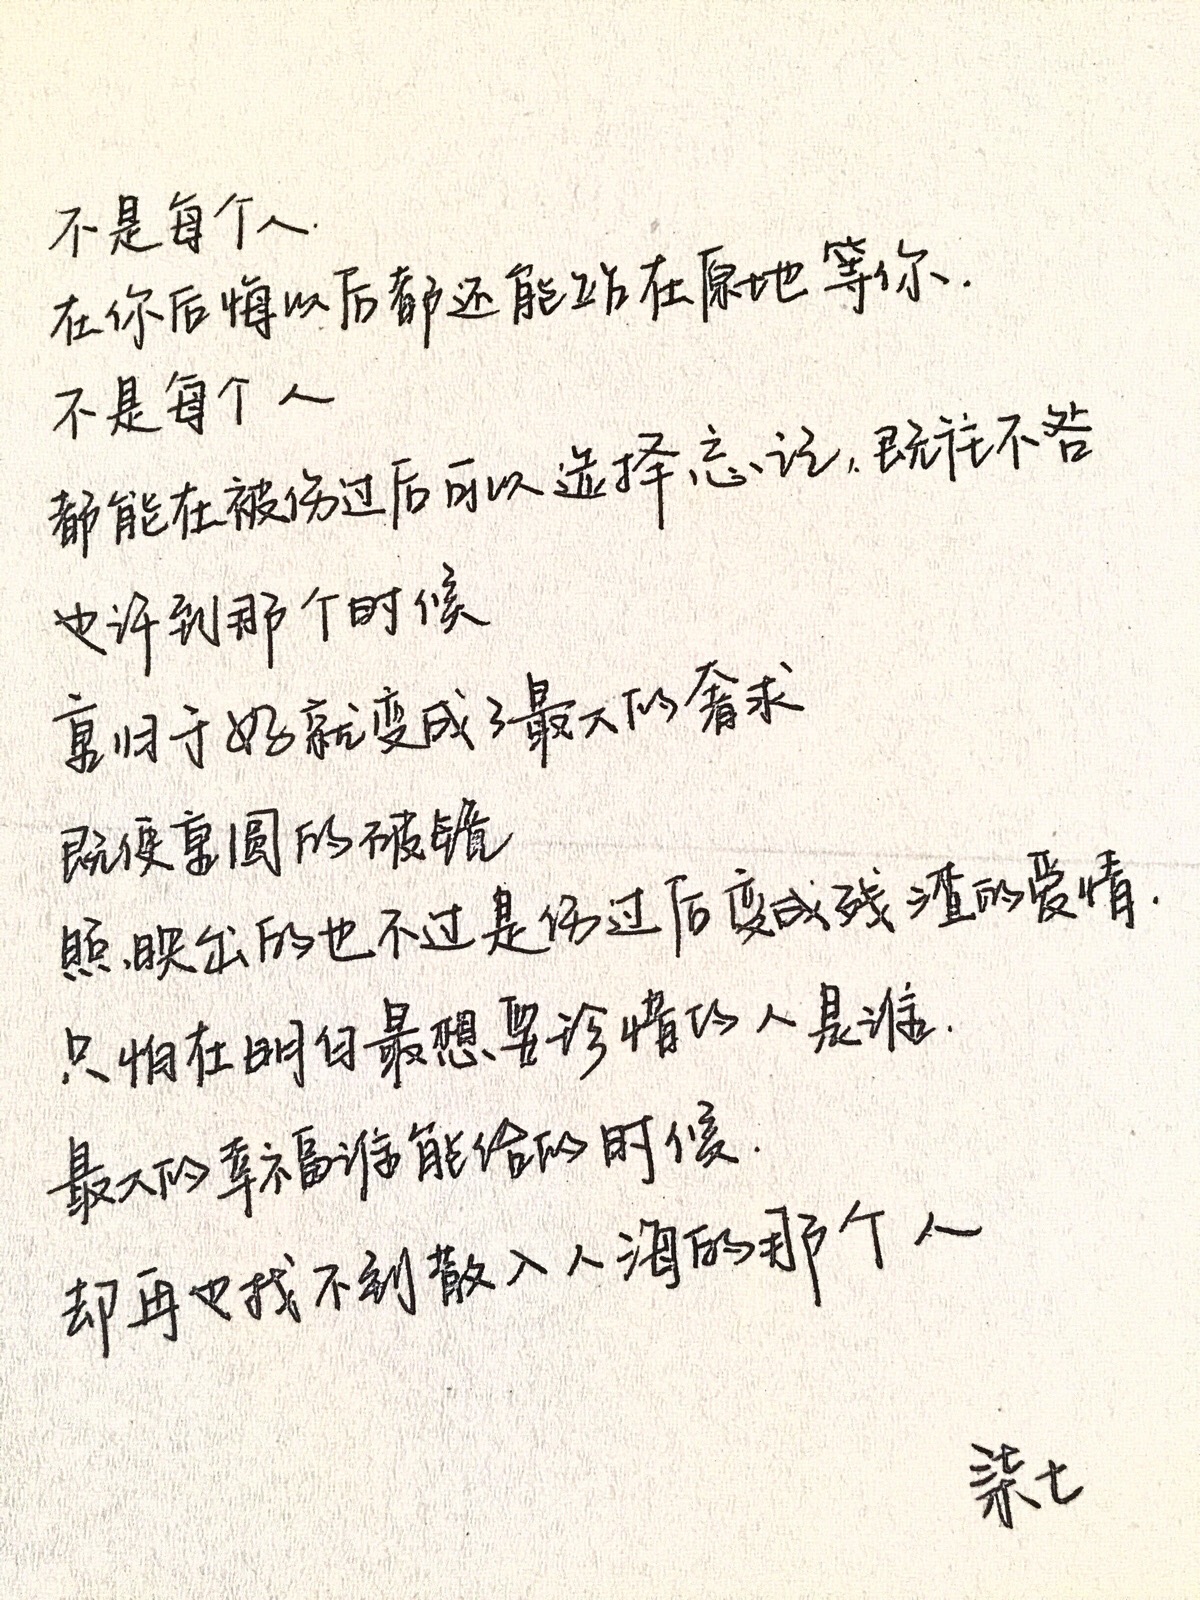 不是每个人.
在你后悔以后都还能站在原地等你.
不是每个人
都能在被伤过后可以选择忘记,既往不咎
也许到那个时候
重归于好就变成了最大的奢求
既便重圆的破镜
照映出的也不过是伤过后变成残渣的爱情.
只怕在明白最想要珍惜的人是谁.
最大的幸福谁能给的时候.
却再也找不到散入人海的那个人
柒七